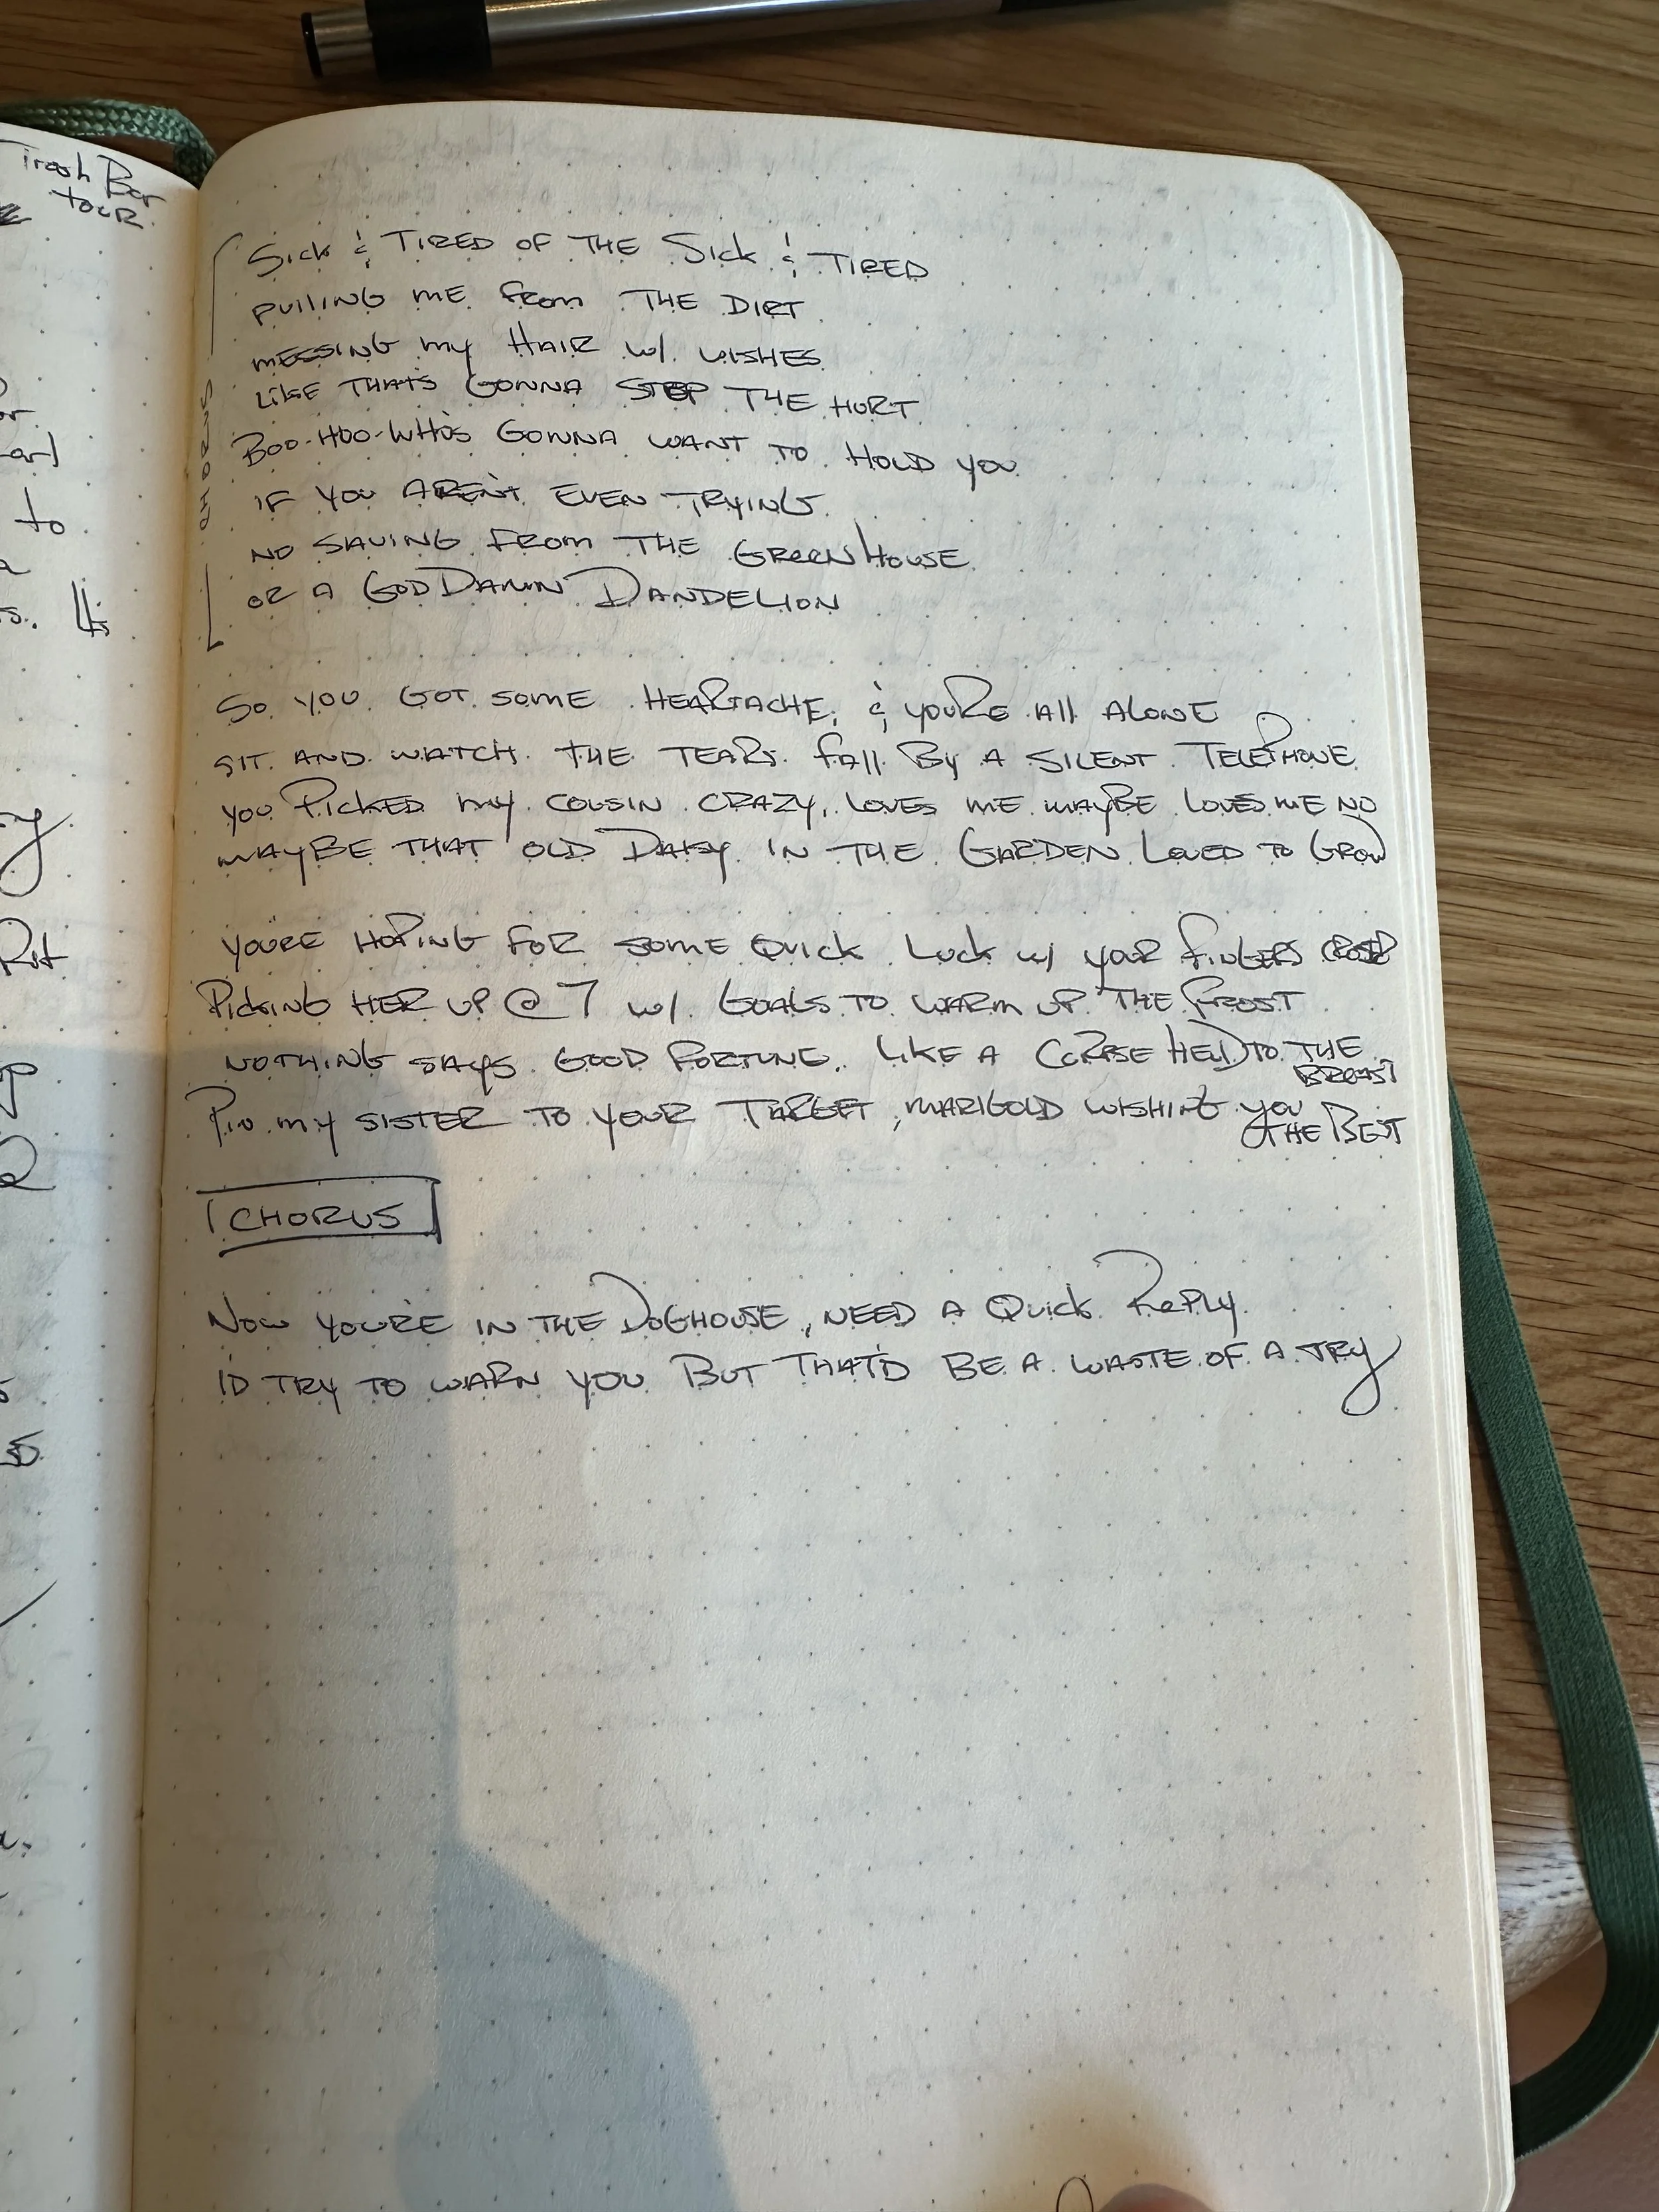 Trash Bar
tour.
to
CHORUS
Sick & TIRED OF THE Sick & TIRED
pulling me from THE DIRT
messing my HAIR w/ wishes
Like THAT'S GONNA STOP THE HURT
Boo-Hoo-WHO'S GONNA WANT TO HOLD you
IF YOU AREN'T EVEN TRYING
NO SAVING FROM THE GREENHOUSE
OR A GOD DAMN DANDELION
So you GOT some HEARTACHE, & you're All ALONE
SIT AND WATCH THE TEARS fall By A SILENT TELEPHONE
you PICKED my COUSIN CRAZY, LOVES ME MAYBE LOVES ME NO
MAYBE THAT OLD DAISY IN THE GARDEN LOVED TO GROW
YOU'RE HOPING FOR SOME QUICK Luck w/ your fingers CROSSED
Picking HER UP @ 7 w/ GOALS TO WARM UP THE FROST
NOTHING SAYS GOOD FORTUNE LIKE A CORPSE HELD TO THE
BREAST
Pin my SISTER TO YOUR TARGET, MARIGOLD WISHING you
THE BEST
CHORUS
Now YOU'RE IN THE DOGHOUSE, NEED A Quick Reply
I'D TRY TO WARN YOU BUT THAT'D BE A WASTE OF A TRY